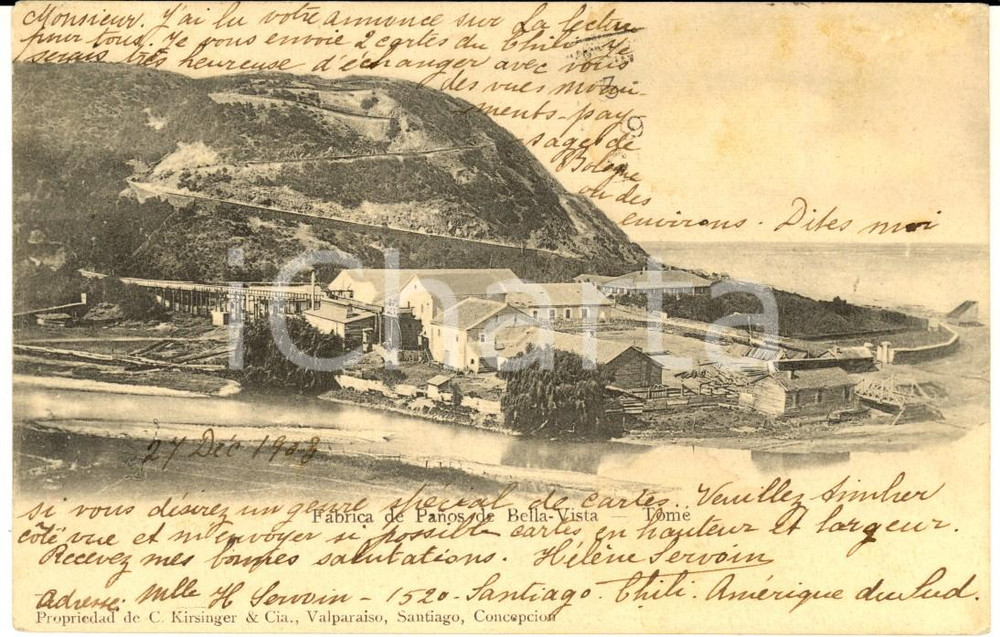 Monsieur. J'ai lu votre annonce sur La lecture
pour tous. Je vous envoie 2 cartes du Chili. Je
serais très heureuse d'échanger avec vous
des vues monu-
ments-pay-
sages de
ou des
environs. Dites moi
iCharta
27 Déc 1903
si vous désirez un genre spécial de cartes. Veuillez timbrer
Fábrica de Paños de Bella-Vista — Tomé
côté vue et m'envoyer si possible cartes en hauteur et largeur.
Recevez mes bonnes salutations. Hélène Servoin
Adresse. Mlle H Servoin - 1520. Santiago. Chili. Amérique du Sud.
Propriedad de C. Kirsinger & Cia., Valparaiso, Santiago, Concepcion